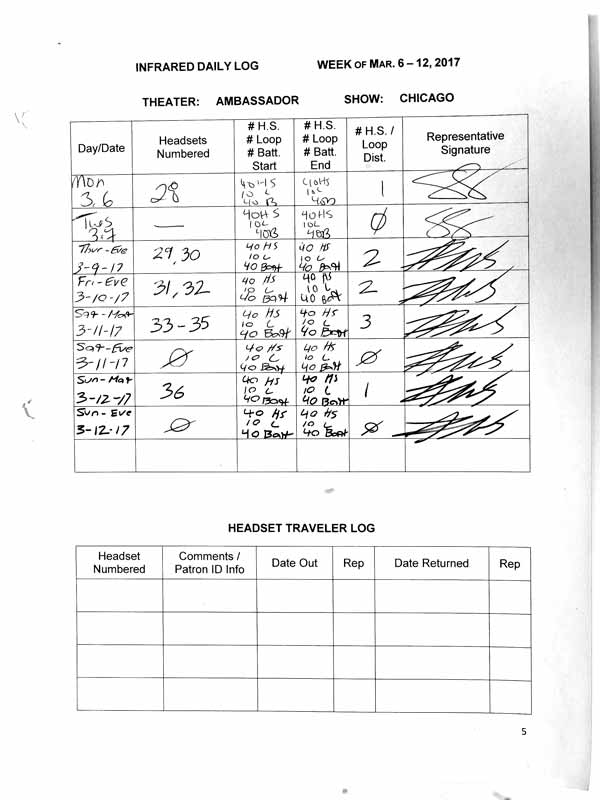 INFRARED DAILY LOG WEEK OF MAR. 6 – 12, 2017
THEATER: AMBASSADOR SHOW: CHICAGO
Day/Date Headsets Numbered # H.S. # Loop # Batt. Start # H.S. # Loop # Batt. End # H.S. / Loop Dist. Representative Signature
Mon 3.6 28 40HS 10L 40B 40HS 10L 40B 1
Tues 3.7 — 40HS 10L 40B 40HS 10L 40B Ø
Thur-Eve 3-9-17 29,30 40 HS 10 L 40 Batt 40 HS 10 L 40 Batt 2
Fri-Eve 3-10-17 31,32 40 HS 10 L 40 Batt 40 HS 10 L 40 Bat 2
Sat-Mat 3-11-17 33-35 40 HS 10 L 40 Batt 40 HS 10 L 40 Batt 3
Sat-Eve 3-11-17 Ø 40 HS 10 L 40 Batt 40 HS 10 L 40 Batt Ø
Sun-Mat 3-12-17 36 40 HS 10 L 40 Batt 40 HS 10 L 40 Batt 1
Sun-Eve 3-12-17 Ø 40 HS 10 L 40 Batt 40 HS 10 L 40 Batt Ø
HEADSET TRAVELER LOG
Headset Numbered Comments / Patron ID Info Date Out Rep Date Returned Rep
5